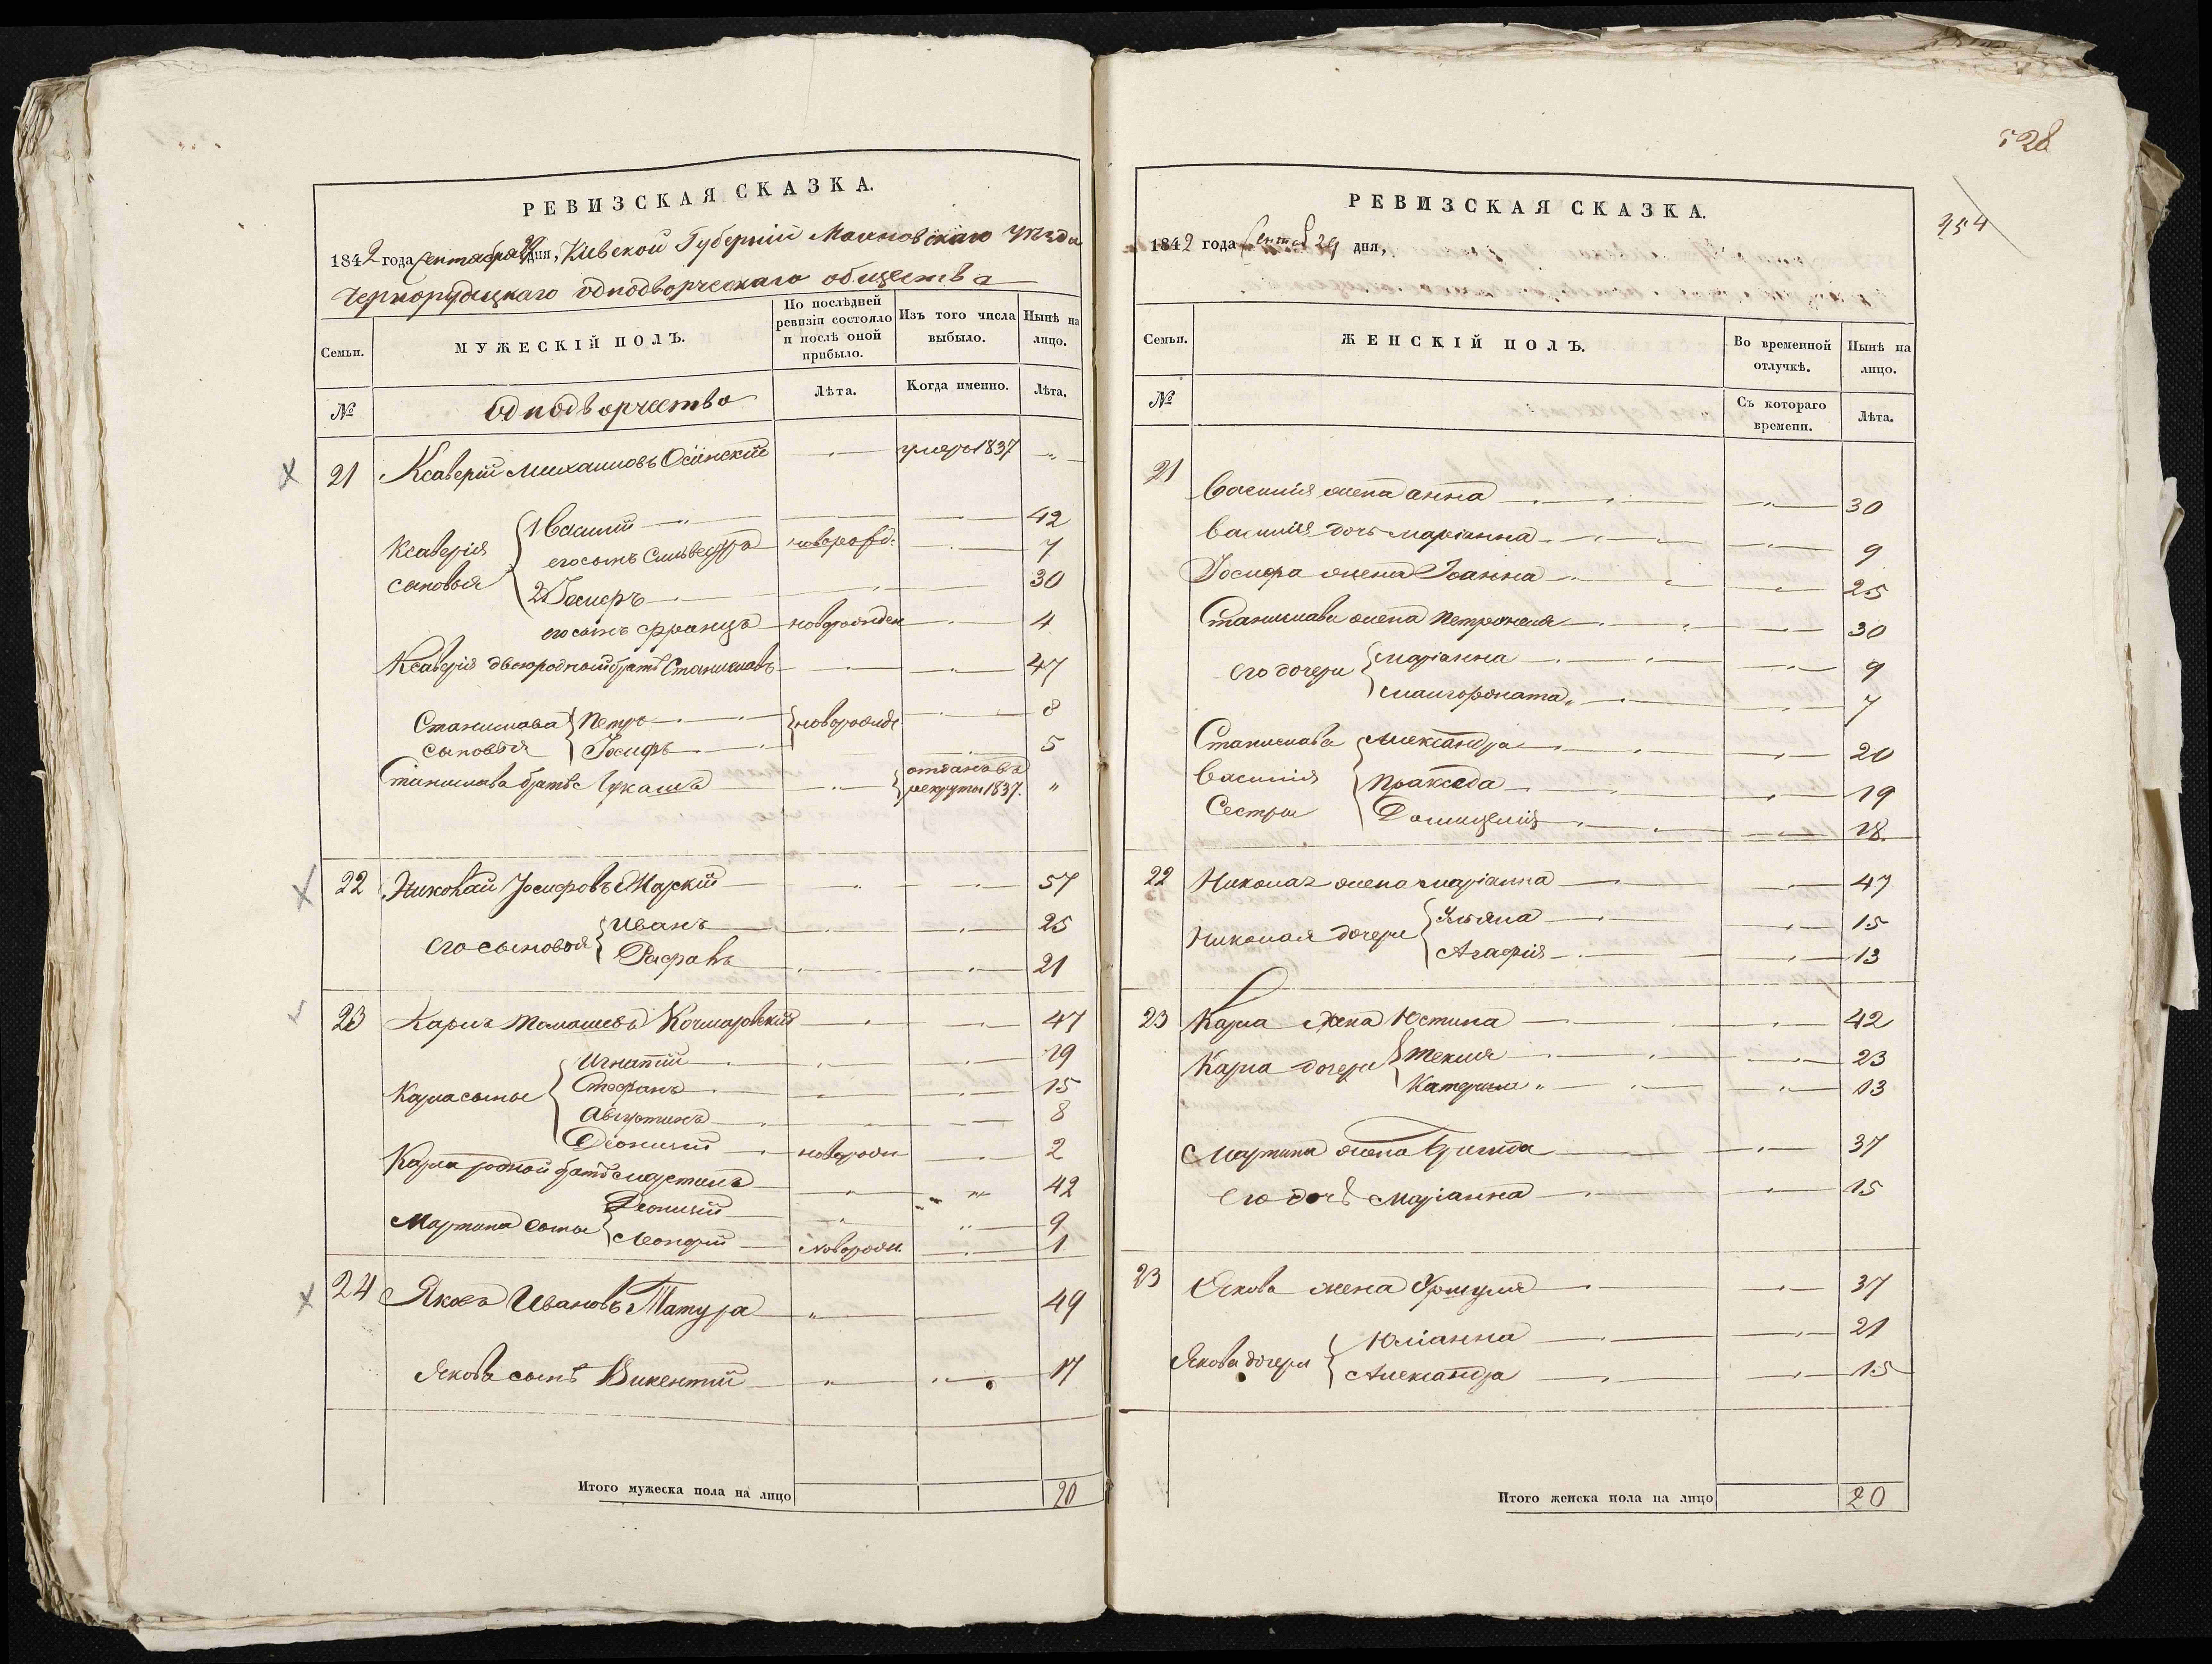 РЕВИЗСКАЯ СКАЗКА.
1842 года Сентября 29 дня, Кіевской Губерніи Махновскаго Уѣзда
Чернорудцкаго однодворческаго общества
Семьи.
МУЖЕСКІЙ ПОЛЪ.
По послѣдней ревизіи состояло и послѣ оной прибыло.
Изъ того числа выбыло.
Нынѣ на лицо.
№
Однодворчество
Лѣта.
Когда именно.
Лѣта.
21 Ксаверій Михаиловъ Осинскій умеръ 1837 "
Ксаверія сыновья
1 Василій 42
его сынъ Сильвестръ новорожд: 7
2 Іосифъ 30
его сынъ Францъ новорожден 4
Ксаверія двоюродный братъ Станиславъ 47
Станислава сыновья
Петръ новорожде 8
Іосифъ 5
Станислава братъ Лукашъ отданъ въ рекруты 1837. "
22 Николай Іосифовъ Марскій 57
его сыновья
Иванъ 25
Рафаль 21
23 Карлъ Томашевъ Кочмаровскій 47
Карла сыны
Игнатій 19
Стефанъ 15
Августинъ 8
Діонисій новорожд 2
Карла родной братъ Мартинъ 42
Мартина сыны
Діонисій 9
Новорожд. 1
24 Яковъ Ивановъ Татура 49
Якова сынъ Викентій 17
Итого мужеска пола на лицо 20
528
954
РЕВИЗСКАЯ СКАЗКА.
1842 года Сентяб 29 дня,
Семьи.
ЖЕНСКІЙ ПОЛЪ.
Во временной отлучкѣ.
Нынѣ на лицо.
№
Съ котораго времени.
Лѣта.
21 Василія жена Анна 30
Василія дочь Маріанна 9
Іосифа жена Іоанна 25
Станислава жена Петронеля 30
его дочери
Маріанна 9
Малгоржата 7
Станислава Василія Сестры
Александра 20
Пракседа 19
Домицелія 18
22 Николая жена Маріанна 47
Николая дочери
Ульяна 15
Агафія 13
23 Карла жена Юстина 42
Карла дочери
Текля 23
Катерина 13
Мартина жена Бригида 37
Его дочь Маріанна 15
23 Якова жена Уршуля 37
Якова дочери
Юліанна 21
Александра 15
Итого женска пола на лицо 20